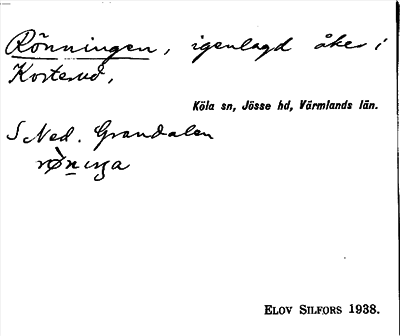 Rönningen, igenlagd åker i
Kosterud,
Köla sn, Jösse hd, Värmlands län.
S Ned. Grandalen
ELOV SILFORS 1938.